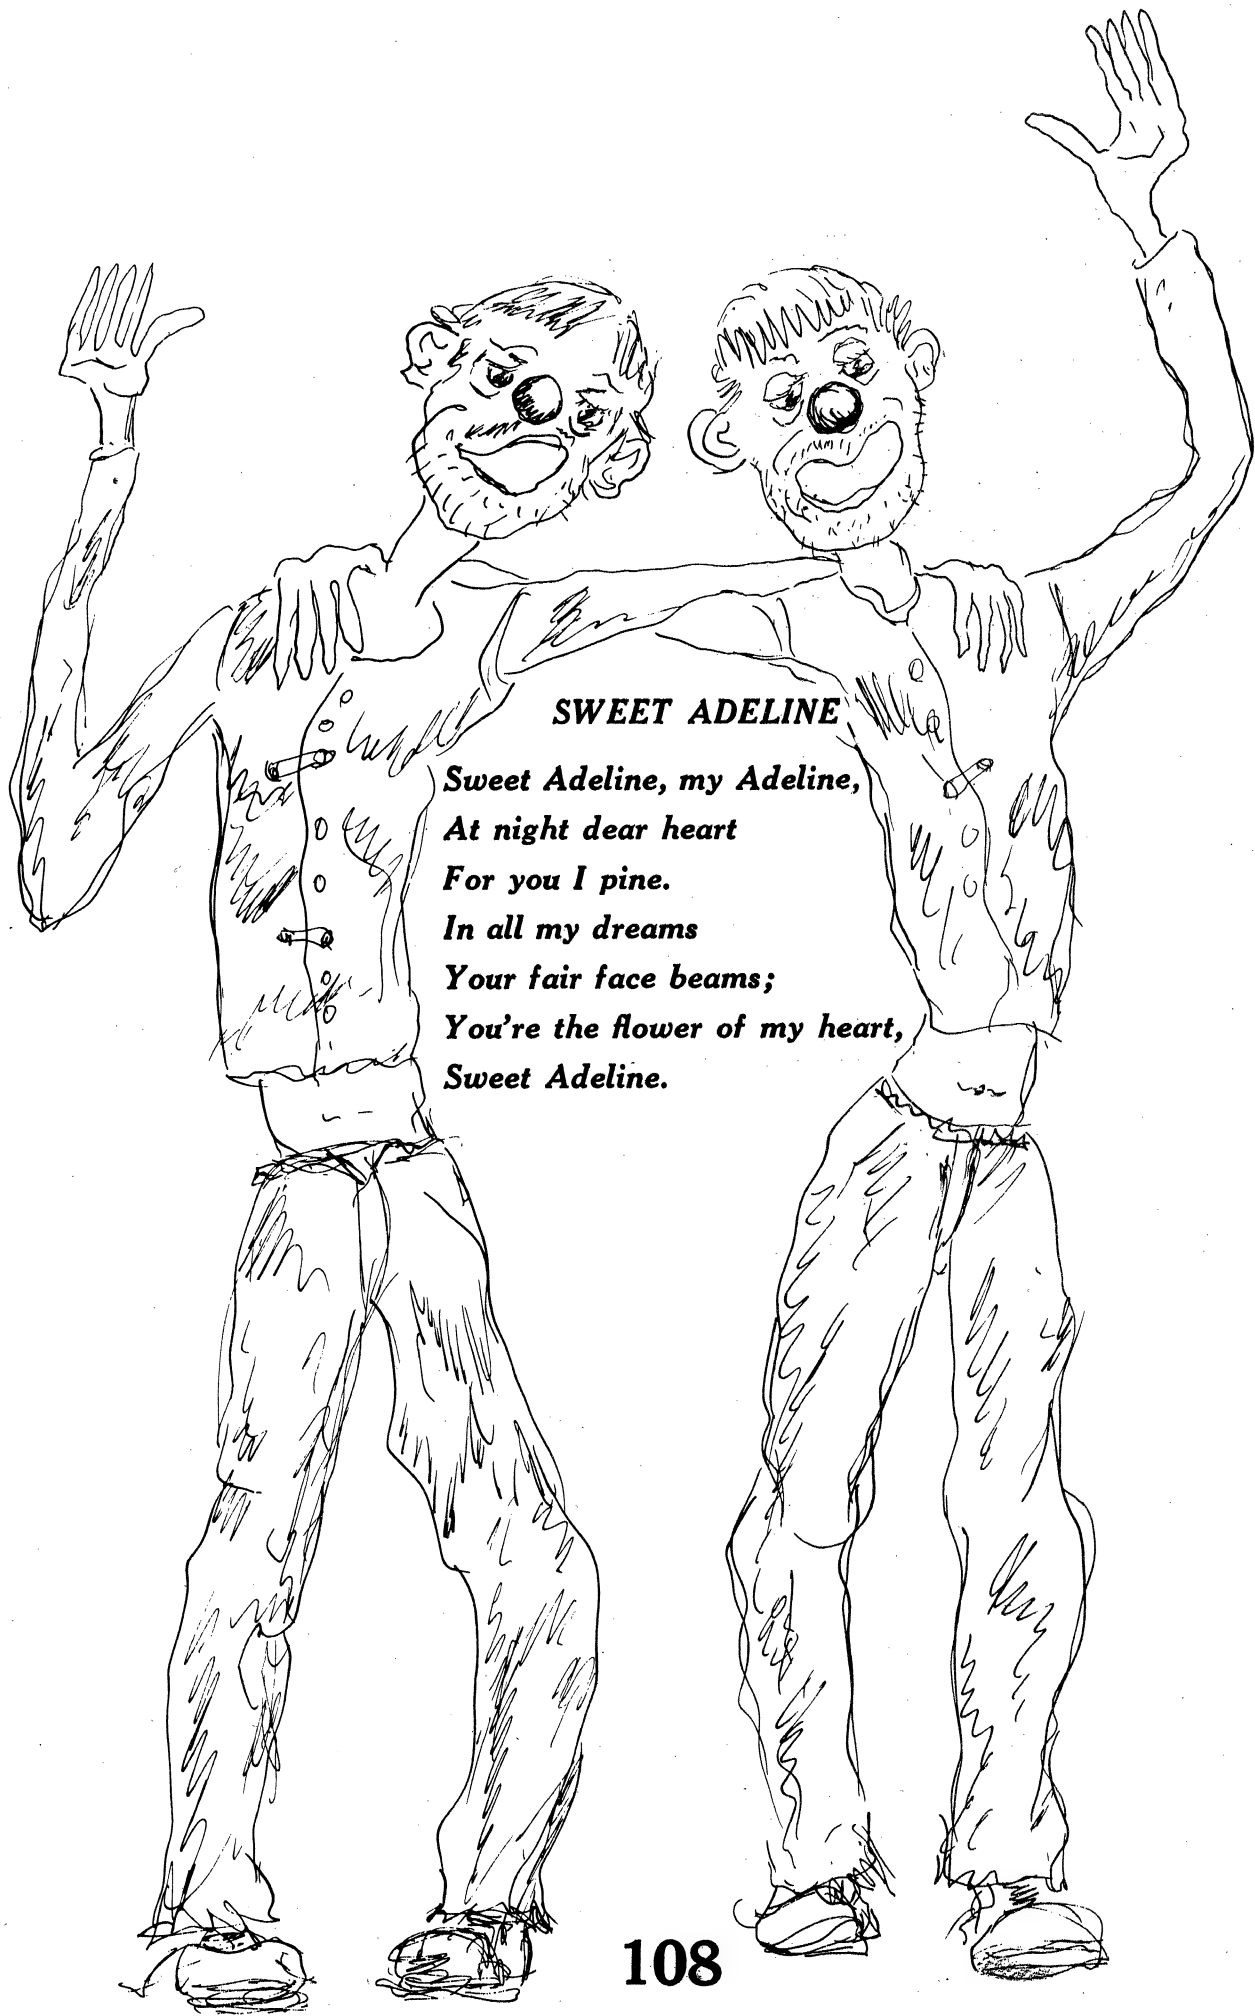 SWEET ADELINE
Sweet Adeline, my Adeline,
At night dear heart
For you I pine.
In all my dreams
Your fair face beams;
You're the flower of my heart,
Sweet Adeline.
108